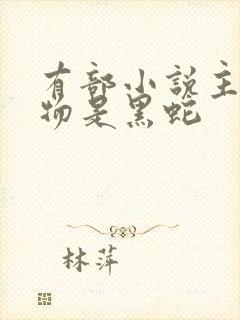 有部小说主
物是黑蛇
林萍